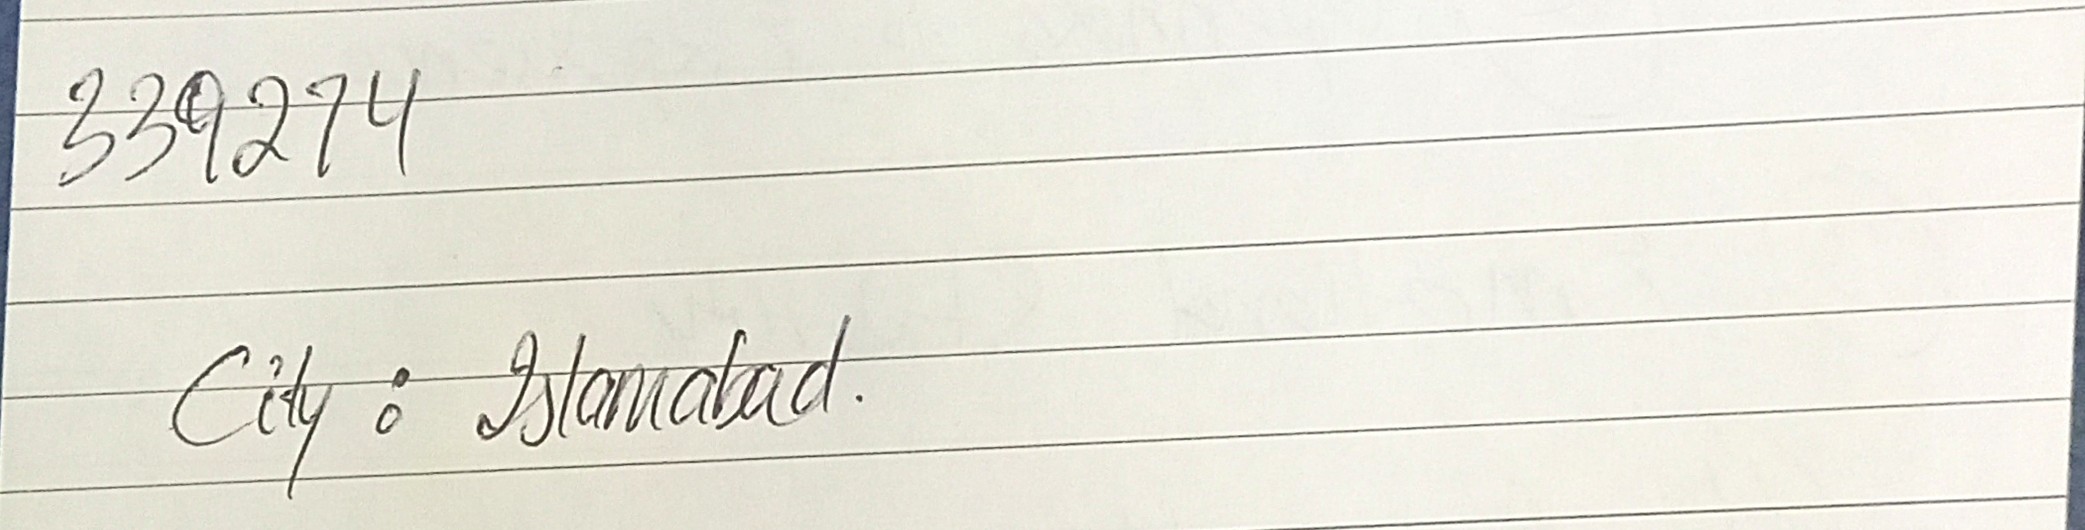 339274
City : Islamabad.